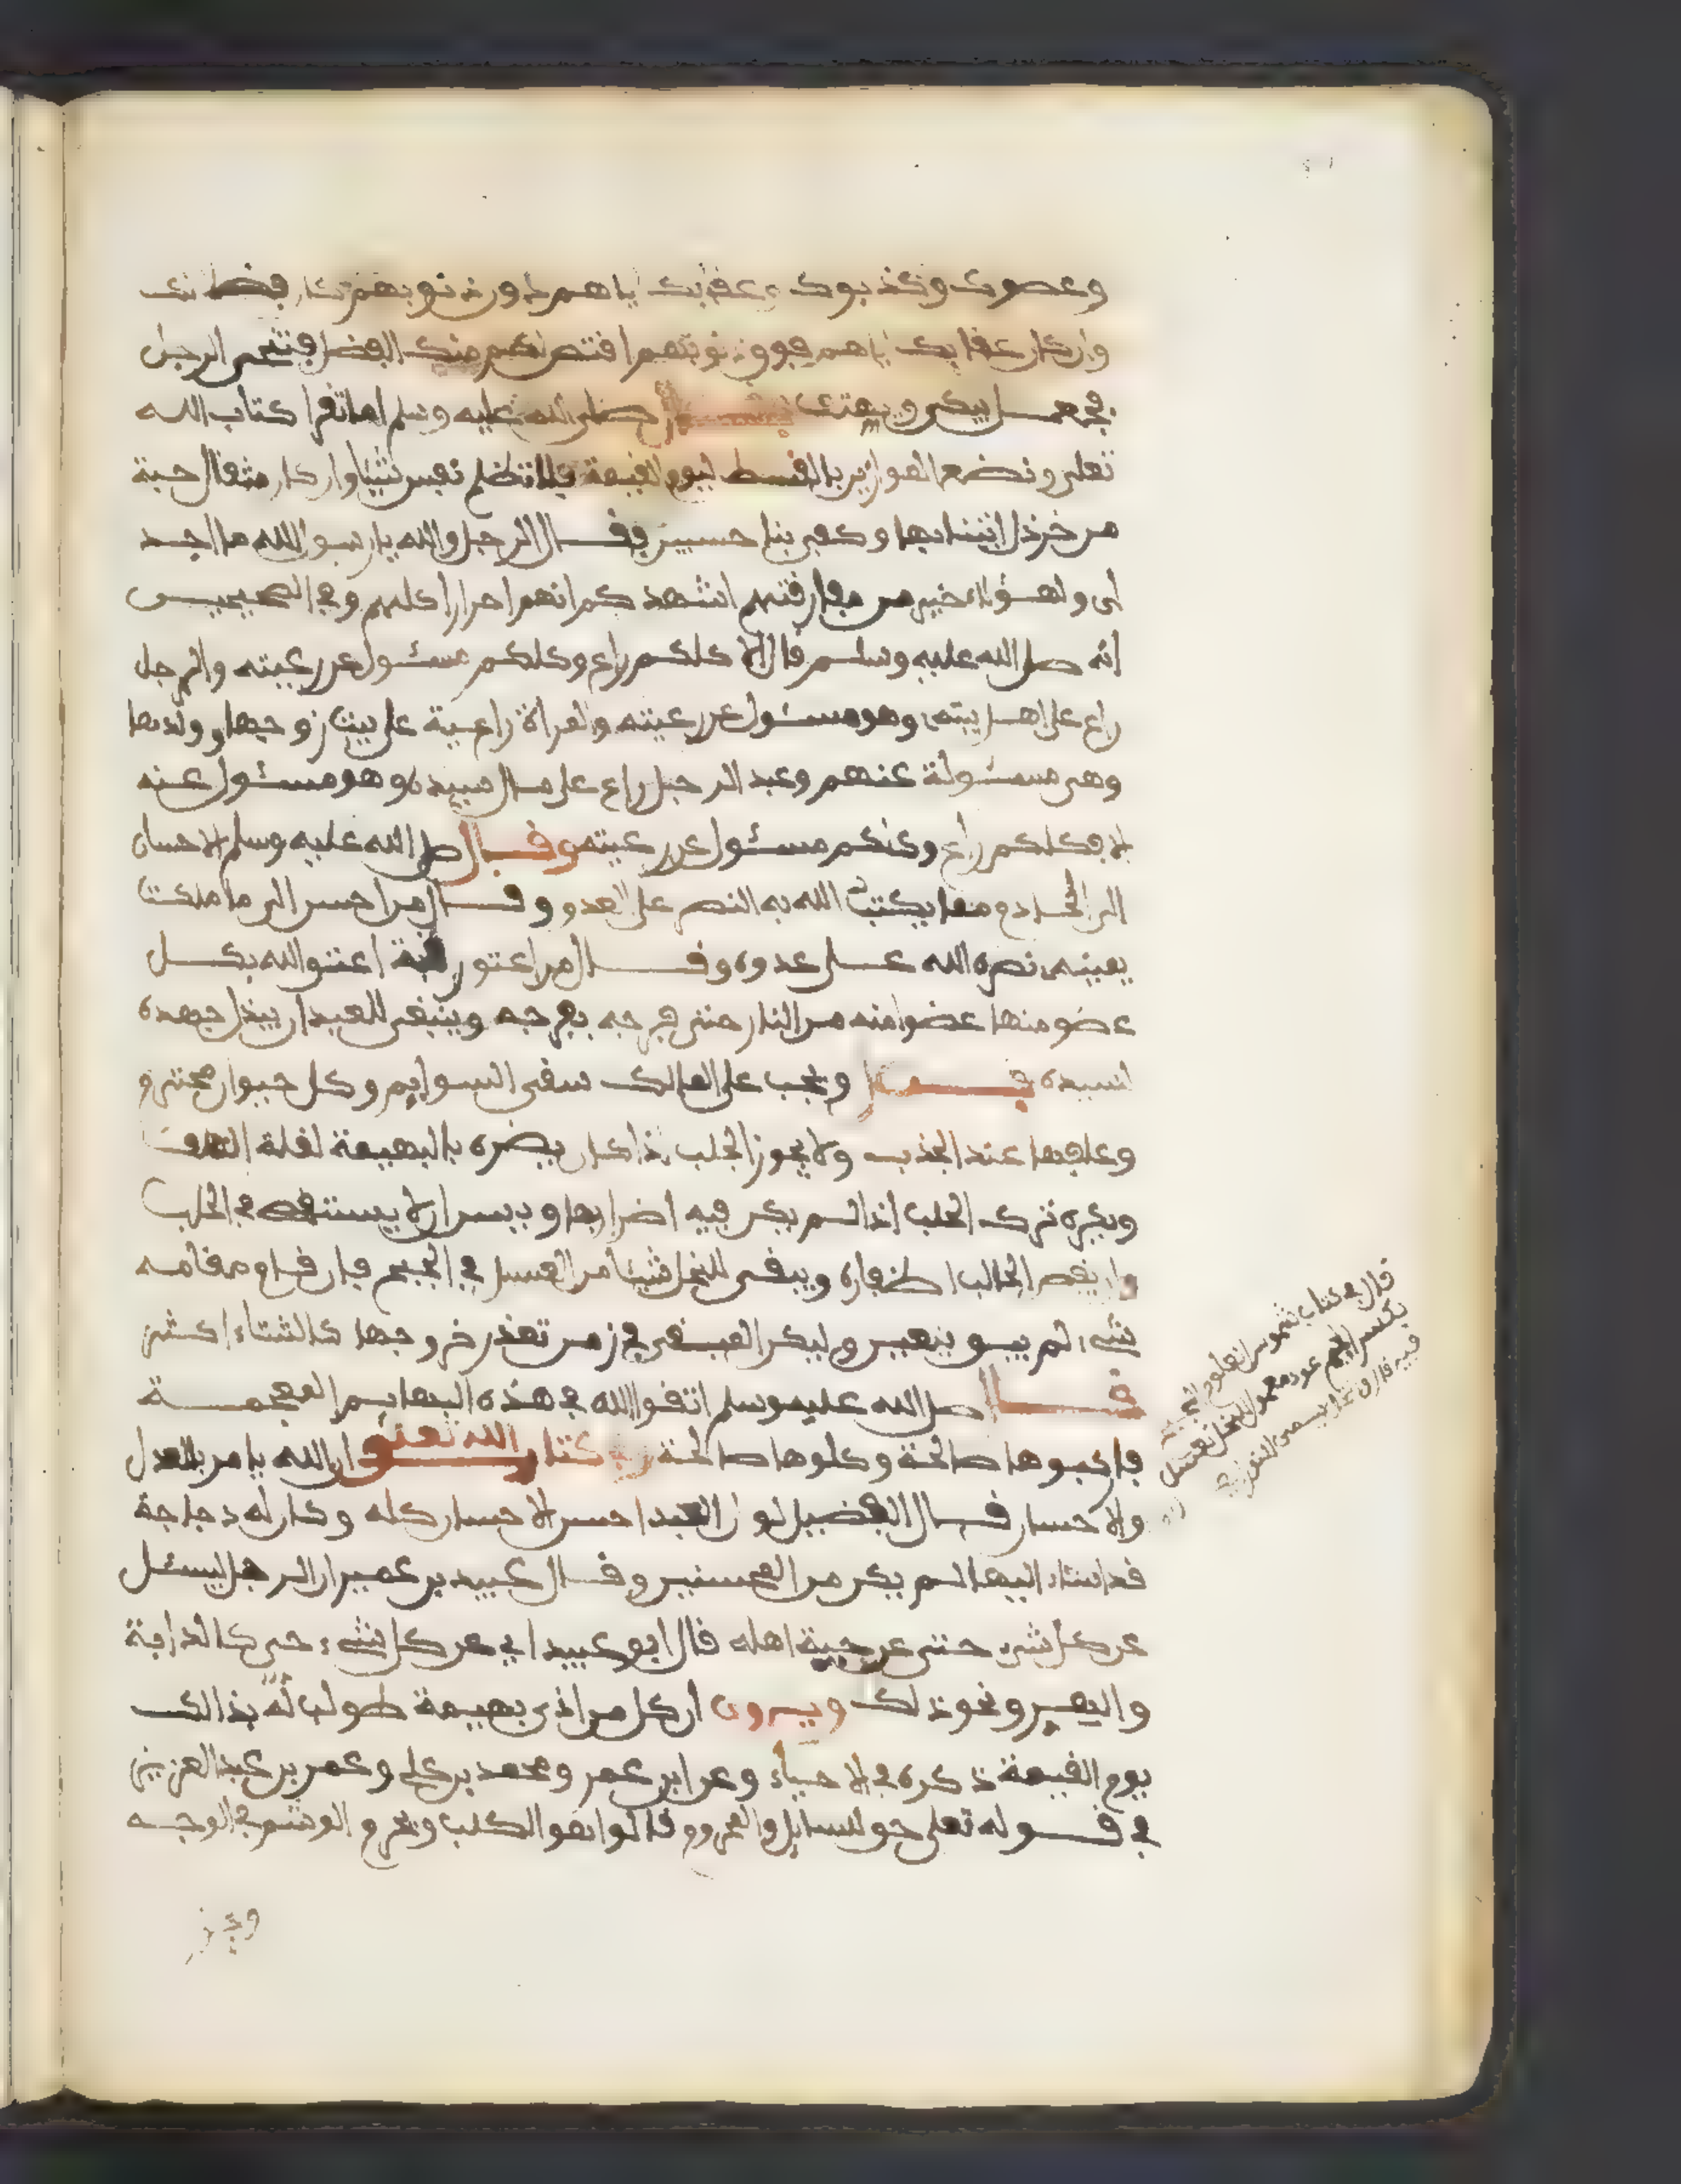 وعصوك وكذبوك وعقابك اياهم دون ذنوبهم كان فضلا لك
وان كان عقابك اياهم فوق ذنوبهم اقتص لهم منك الفضل فتنحى الرجل
فجعل يبكي ويهتف صلى الله عليه وسلم اما تقرا كتاب الله
تعلى ونضع الموازين بالقسط ليوم القيمة فلا تظلم نفس شيئا وان كان مثقال حبة
من خردل اتينا بها وكفى بنا حسبين فقال الرجل والله يا رسول الله ما اجد
لى ولهؤلاء خير من مفارقتهم اشهدكم انهم احرارا كلهم وفي الصحيحين
انه صلى الله عليه وسلم قال الا كلكم راع وكلكم مسئول عن رعيته والرجل
راع على اهل بيته وهو مسئول عن رعيته والمراة راعية على بيت زوجها وولدها
وهى مسئولة عنهم وعبد الرجل راع على مال سيده وهو مسئول عنه
الا فكلكم راع وكلكم مسئول عن رعيته وقال صلى الله عليه وسلم الاحسان
الى الخادم مما يكتب الله به النصر على العدو وقال من احسن الى ما ملكت
يمينه نصره الله على عدوه وقال من اعتق رقبة اعتق الله بكل
عضو منها عضوا منه من النار حتى فرجه بفرجه وينبغى للعبد ان يبذل جهده
لسيده ويجب على المالك سقى السوايم وكل حيوان محترم
وعلفها عند الجذب ولا يجوز الحلب اذا كان يضره بالبهيمة لقلة العلف
ويكره ترك الحلب اذا لم يكن فيه اضرار بها ويسن ان لا يستقصى في الحلب
وان يقص الحالب اظفاره ويبقى للنحل شيئا من العسل في الجبح فان قام مقامه
شيء لم يبق يتعين وليكن المبقى في زمن تعذر خروجها كالشتاء اكثر
قال صلى الله عليه وسلم اتقوا الله في هذه البهايم المعجمة
فاركبوها صالحة وكلوها صالحة كتاب الله تعلى ان الله يامر بالعدل
والاحسان قال الفضيل لو ان العبد احسن الاحسان كله وكان له دجاجة
قد اساء اليها لم يكن من المحسنين وقال عبيد بن عمير ان الرجل ليسئل
عن كل شيء حتى عن حية اهله قال ابو عبيد اي عن كل شيء حي كالدابة
والبعير ونحو ذلك ويرون ان كل من اذى بهيمة طولب له بذالك
يوم القيمة ذكره في الاحياء وعن ابن عمر ومحمد بن علي وعمر بن عبد العزيز
في قوله تعلى حق للسايل والمحروم قالوا هو الكلب ويحرم الوشم في الوجه
قال في كتاب شموس العلوم
بكسر الجيم عود معمول للنحل تعسل
فيه قال